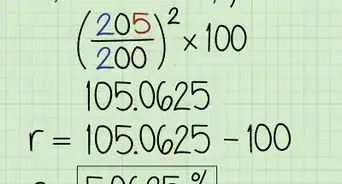 (205/200)² × 100
105.0625
r = 105.0625 - 100